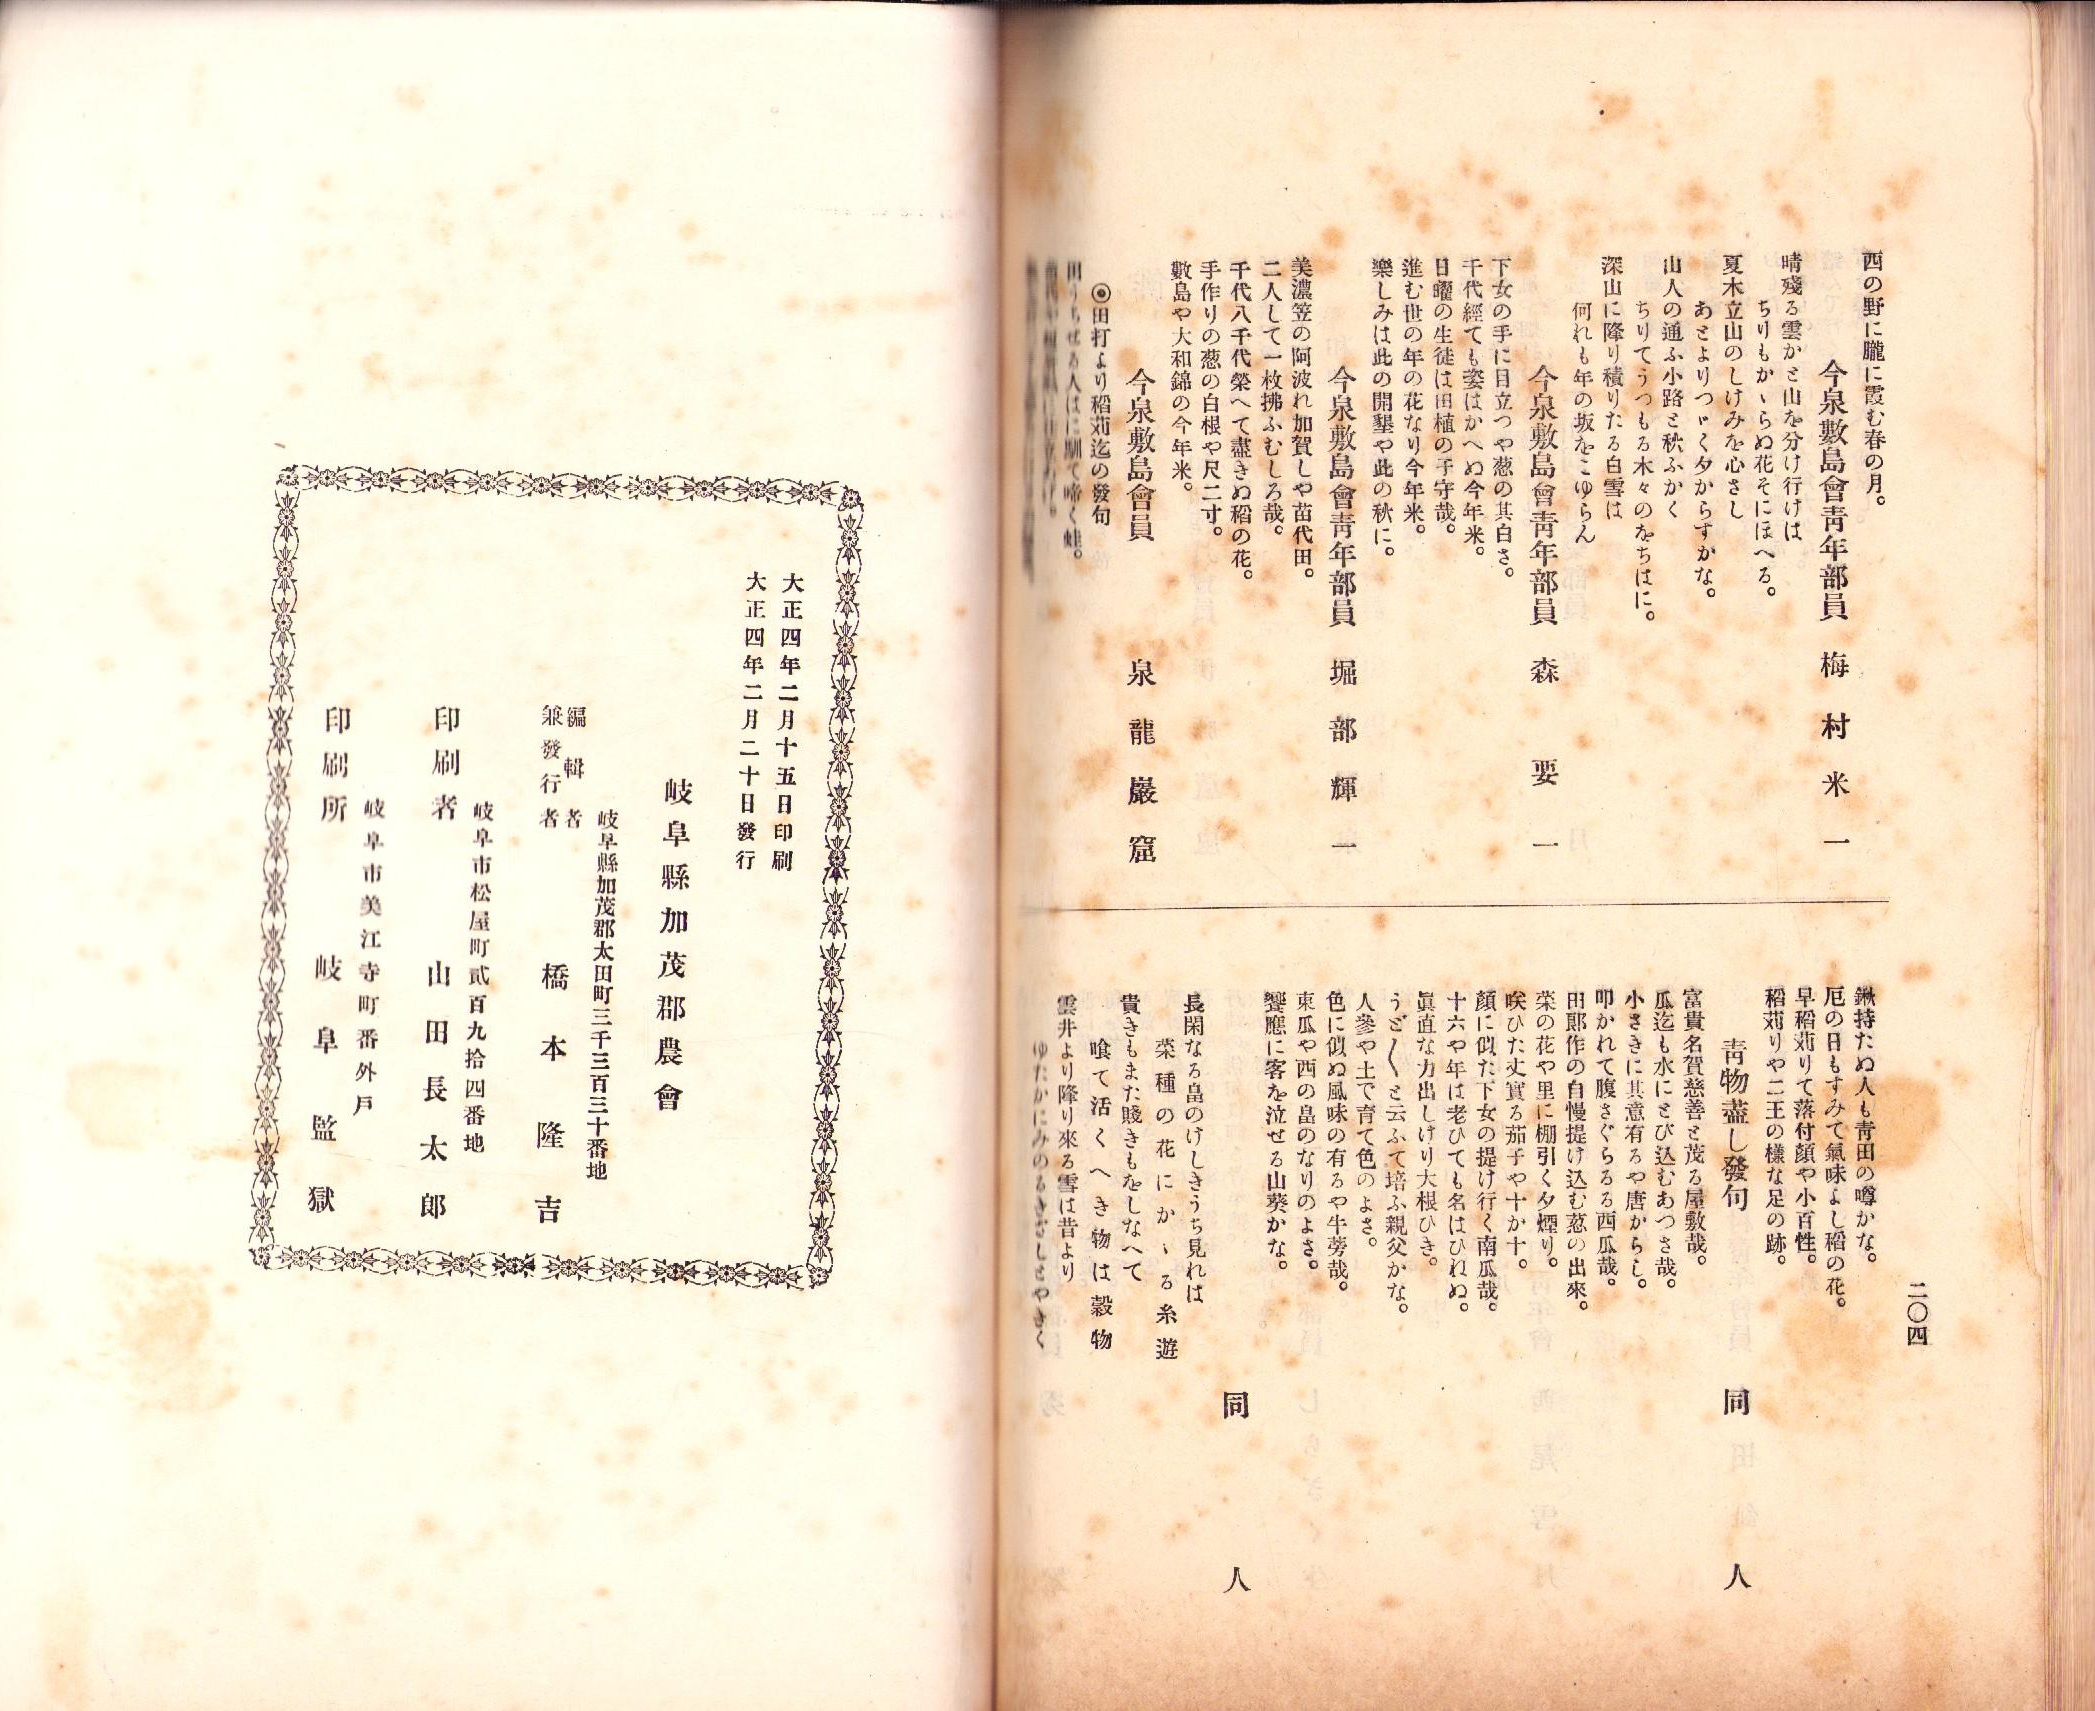 二〇四
西の野に朧に霞む春の月。
今泉敷島會靑年部員　梅村米一
晴殘る雲かと山を分け行けは
ちりもかゝらぬ花そにほへる。
夏木立山のしけみを心さし
あとよりつゞく夕からすかな。
山人の通ふ小路と秋ふかく
ちりてうつもる木々のをちはに。
深山に降り積りたる白雪は
何れも年の坂をこゆらん
今泉敷島會靑年部員　森要一
下女の手に目立つや葱の其白さ。
千代經ても姿はかへぬ今年米。
日曜の生徒は田植の子守哉。
進む世の年の花なり今年米。
樂しみは此の開墾や此の秋に。
今泉敷島會靑年部員　堀部輝一
美濃笠の阿波れ加賀しや苗代田。
二人して一枚拂ふむしろ哉。
千代八千代榮へて盡きぬ稻の花。
手作りの葱の白根や尺二寸。
敷島や大和錦の今年米。
今泉敷島會員　泉龍巖窟
◉田打より稻苅迄の發句
田うちせる人はに馴て啼く蛙。
鍬持たぬ人も靑田の噂かな。
厄の日もすみて氣味よし稻の花。
早稻苅りて落付顏や小百性。
稻苅りや二王の樣な足の跡。
靑物盡し發句　同人
富貴名賀慈善と茂る屋敷哉。
瓜迄も水にとび込むあつさ哉。
小さきに其意有るや唐からし。
叩かれて腹さぐらるる西瓜哉。
田郎作の自慢提け込む葱の出來。
菜の花や里に棚引く夕煙り。
咲ひた丈實る茄子や十か十。
顏に似た下女の提け行く南瓜哉。
十六や年は老ひても名はひねぬ。
眞直な力出しけり大根ひき。
うど〱と云ふて培ふ親父かな。
人參や土で育て色のよさ。
色に似ぬ風味の有るや牛蒡哉。
東瓜や西の畠のなりのよさ。
饗應に客を泣せる山葵かな。
同人
長閑なる畠のけしきうち見れは
菜種の花にかゝる糸遊
貴きもまた賤きもをしなへて
喰て活くへき物は穀物
雲井より降り來る雪は昔より
ゆたかにみのるきざしとやきく
大正四年二月十五日印刷
大正四年二月二十日發行
岐阜縣加茂郡農會
岐阜縣加茂郡太田町三千三百三十番地
編輯者
兼發行者　橋本隆吉
岐阜市松屋町貳百九拾四番地
印刷者　山田長太郎
岐阜市美江寺町番外戶
印刷所　岐阜監獄